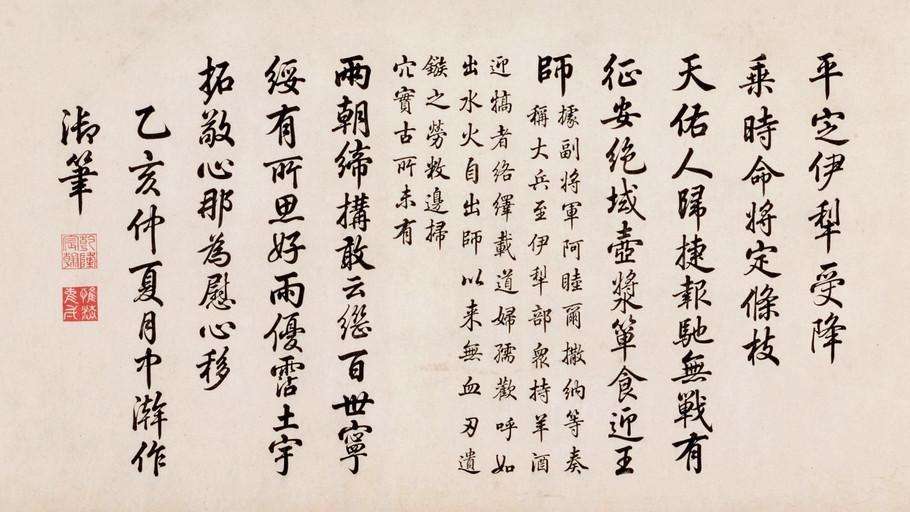 平定伊犁受降
乘時命將定條枝
天佑人歸捷報馳無戰有
征安絶域壺漿簞食迎王
師
據副將軍阿睦爾撒納等奏
稱大兵至伊犁部衆持羊酒
迎犒者絡繹載道婦孺歡呼如
出水火自出師以来無血刃遺
鏃之勞敉邊掃
穴實古所未有
兩朝締構敢云繼百世寧
綏有所思好雨優霑土宇
拓敬心那為慰心移
乙亥仲夏月中澣作
御筆
乾隆宸翰